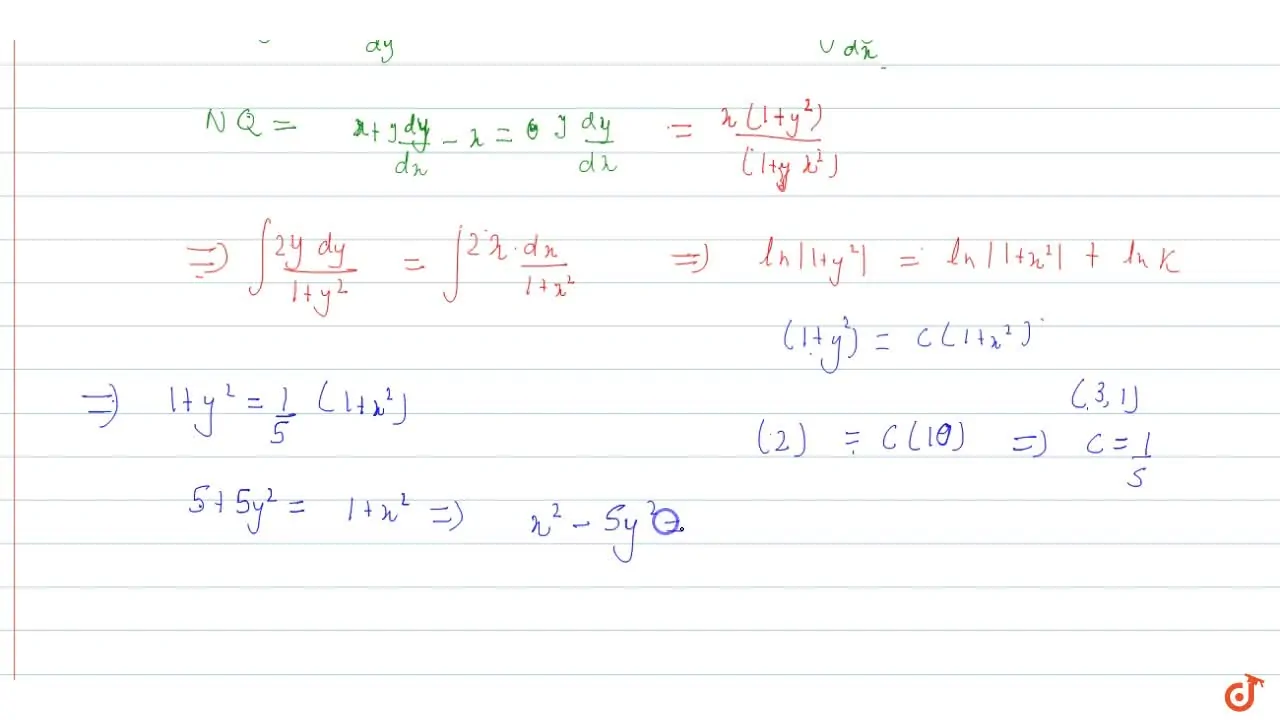 dy dx
NQ = x + y dy/dx - x = y dy/dx = x(1+y²)/(1+x²)
⇒ ∫ 2y dy/1+y² = ∫ 2x · dx/1+x² ⇒ ln|1+y²| = ln|1+x²| + ln K
(1+y²) = C(1+x²)
⇒ 1+y² = 1/5 (1+x²)
(3,1)
(2) = C(10) ⇒ C = 1/5
5+5y² = 1+x² ⇒ x² - 5y² =